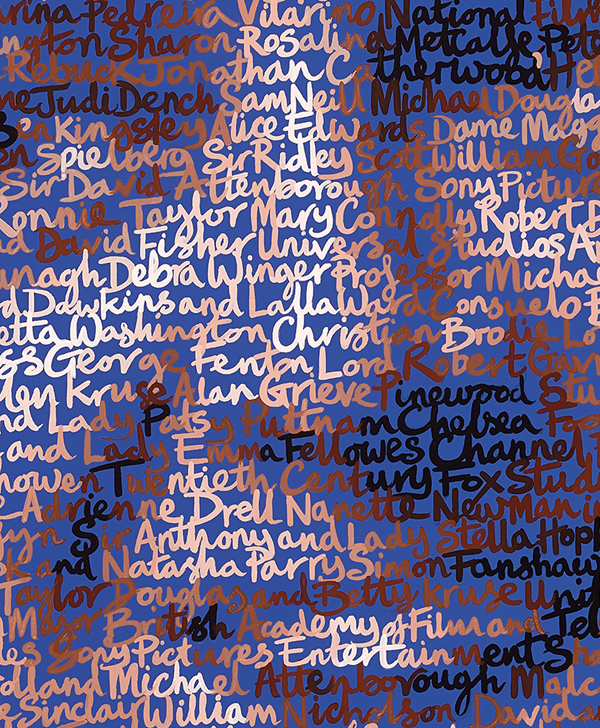 rina Pedreira Vitarino, National Film
ngton Sharon Rosalind Metcalfe Pete
Rebuck Jonathan Catherwood He
ne Judi Dench Sam Neill Michael Dougla
Ben Kingsley Alice Edwards Dame Magg
en Spielberg Sir Ridley Scott William Go
Sir David Attenborough Sony Picture
Ronnie Taylor Mary Connolly Robert D
nd David Fisher Universal Studios A
anagh Debra Winger Professor Micha
d Dawkins and Lalla Ward Consuelo B
etta Washington Christian Brodie Lo
ss George Fenton Lord Robert Gav
ley Kruse Alan Grieve Pinewood Stu
nd Lady Patsy Puttnam Chelsea Foo
and Lady Emma Fellowes Channel F
nowen Twentieth Century Fox Stud
Adrienne Drell Nanette Newman i
yn Sir Anthony and Lady Stella Hopk
k and Natasha Parry Simon Fanshaw
Taylor Douglas and Betty Kruse Unit
Major British Academy of Film and Tel
es Sony Pictures Entertainment Sh
dland Michael Attenborough Malc
e Sinclair William Nicholson David